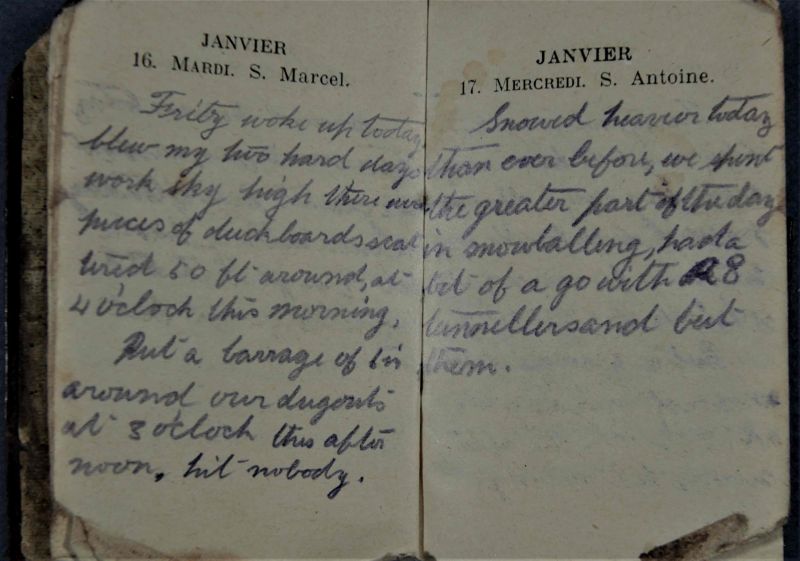 JANVIER
16. MARDI. S. Marcel.
Fritz woke up today
blew my two hard days
work sky high there were
pieces of duckboards scat
tered 50 ft around, at
4 o'clock this morning.
Put a barrage of
around our dugouts
at 3 o'clock this after
noon, hit nobody.
JANVIER
17. MERCREDI. S. Antoine.
Snowed heavier today
than ever before, we spent
the greater part of the day
in snowballing, had a
bit of a go with 28
tunnellers and beat
them.